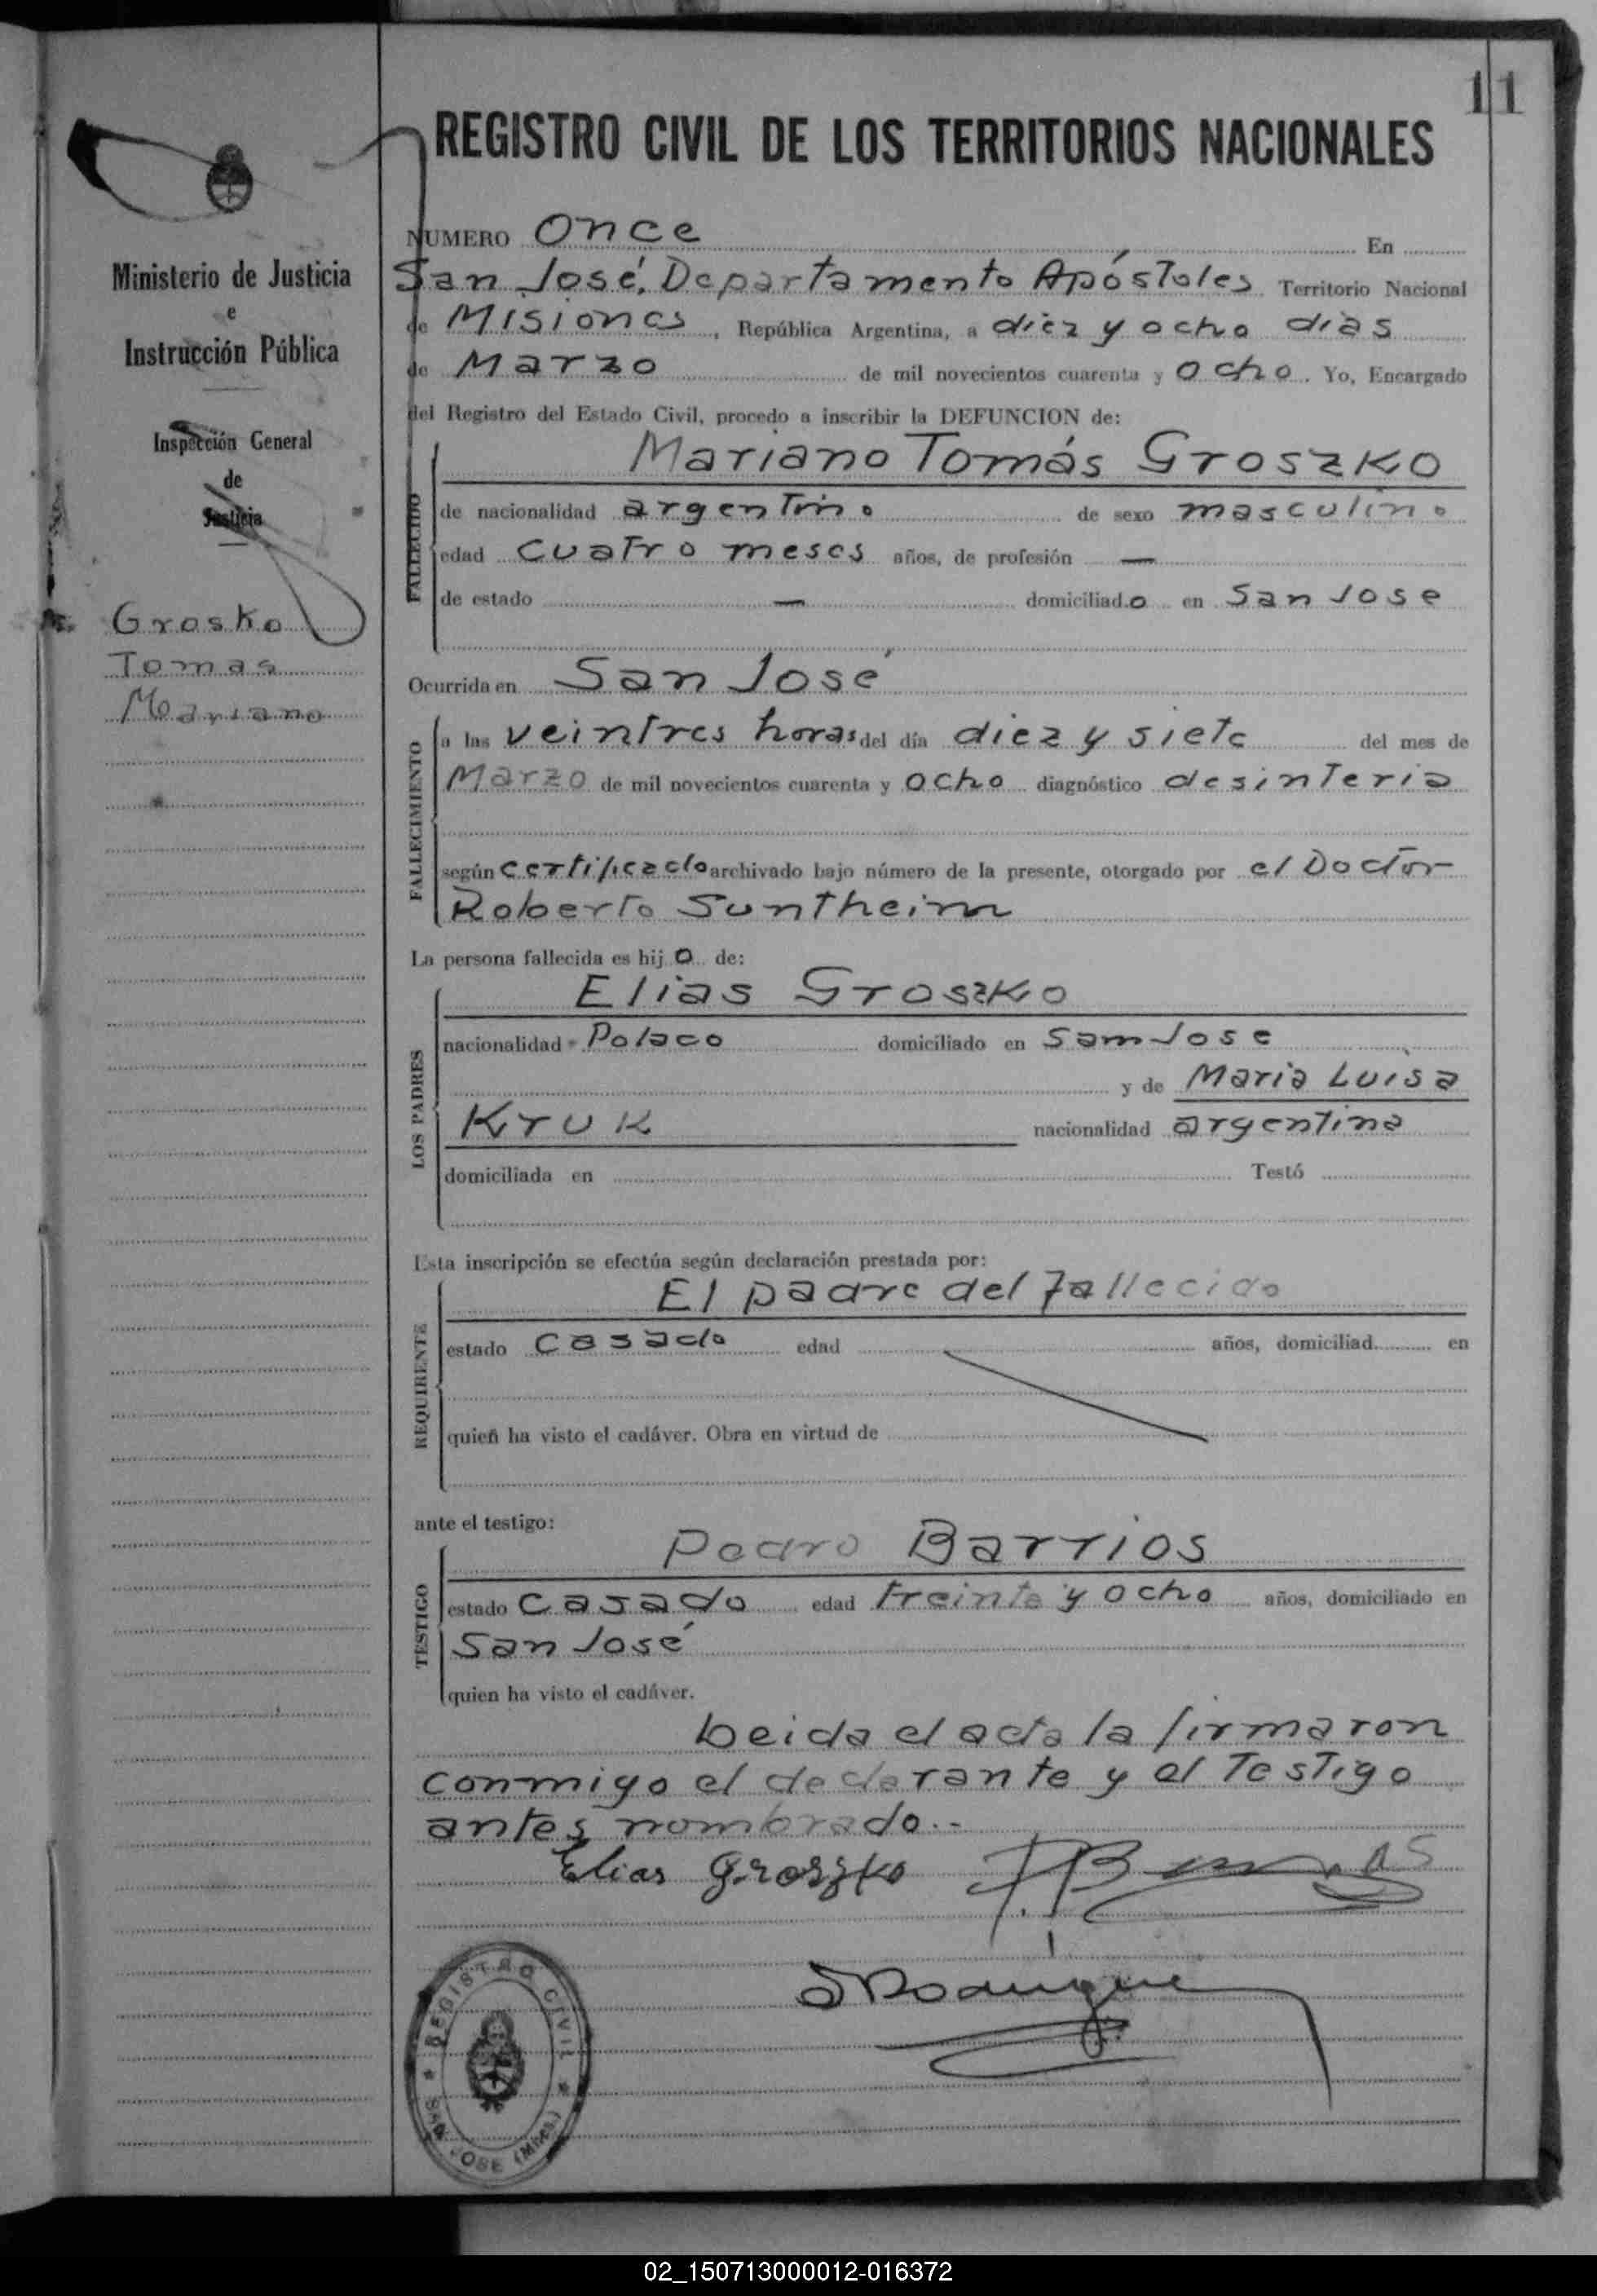 11
REGISTRO CIVIL DE LOS TERRITORIOS NACIONALES
Ministerio de Justicia
e
Instrucción Pública
Inspección General
de
Justicia
Grosko
Tomas
Mariano
NUMERO Once En
San José, Departamento Apóstoles Territorio Nacional
de Misiones, República Argentina, a diez y ocho dias
de Marzo de mil novecientos cuarenta y ocho. Yo, Encargado
del Registro del Estado Civil, procedo a inscribir la DEFUNCION de:
FALLECIDO
Mariano Tomás Groszko
de nacionalidad argentino de sexo masculino
edad cuatro meses años, de profesión —
de estado — domiciliado en San Jose
Ocurrida en San José
FALLECIMIENTO
a las veintres horas del día diez y siete del mes de
Marzo de mil novecientos cuarenta y ocho diagnóstico desinteria
según certificado archivado bajo número de la presente, otorgado por el Doctor
Roberto Suntheim
La persona fallecida es hijo de:
LOS PADRES
Elias Groszko
nacionalidad Polaco domiciliado en San Jose
y de Maria Luisa
Kruk nacionalidad argentina
domiciliada en Testó
Esta inscripción se efectúa según declaración prestada por:
REQUIRENTE
El padre del fallecido
estado casado edad años, domiciliad en
quien ha visto el cadáver. Obra en virtud de
ante el testigo:
TESTIGO
Pedro Barrios
estado casado edad treinta y ocho años, domiciliado en
San José
quien ha visto el cadáver.
Leida el acta la firmaron
conmigo el declarante y el Testigo
antes nombrado.-
Elias Groszko
REGISTRO CIVIL
SAN JOSE (Mnes.)
02_150713000012-016372